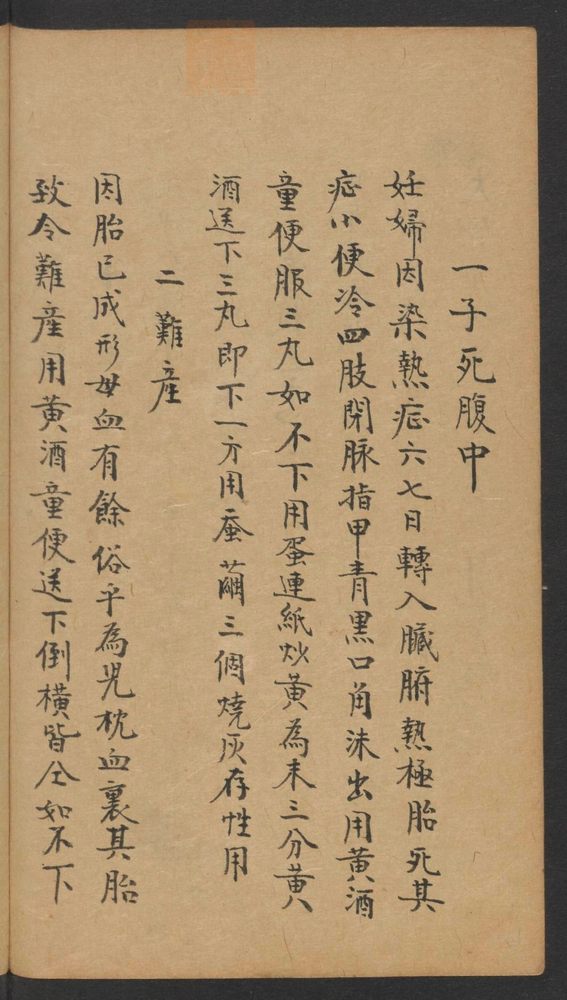 一子死腹中
妊婦因染熱症六七日轉入臟腑熱極胎死其
症小便冷四肢閉脉指甲青黑口角沫出用黄酒
童便服三丸如不下用蛋連紙炒黄為末三分黄
酒送下三丸即下一方用蚕繭三個燒灰存性用
二難産
因胎已成形母血有餘俗乎為児枕血裹其胎
致令難産用黄酒童便送下倒橫皆仝如不下